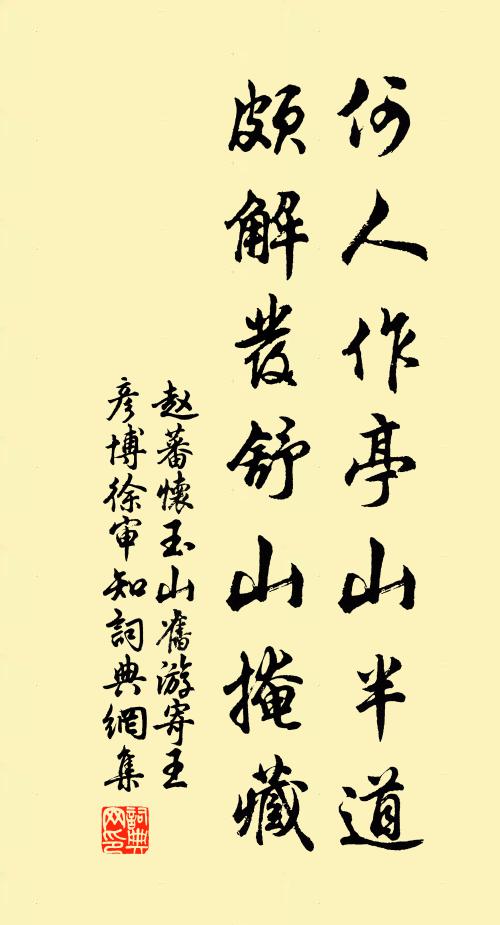 何人作亭山半道
頗解發舒山掩藏
赵蕃懷玉山舊游寄王
彦博徐审知詞典網集
詞典网印